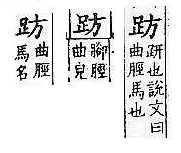 趽
趼也說文曰
曲脛馬也
趽
腳脛
曲皃
趽
曲脛
馬名